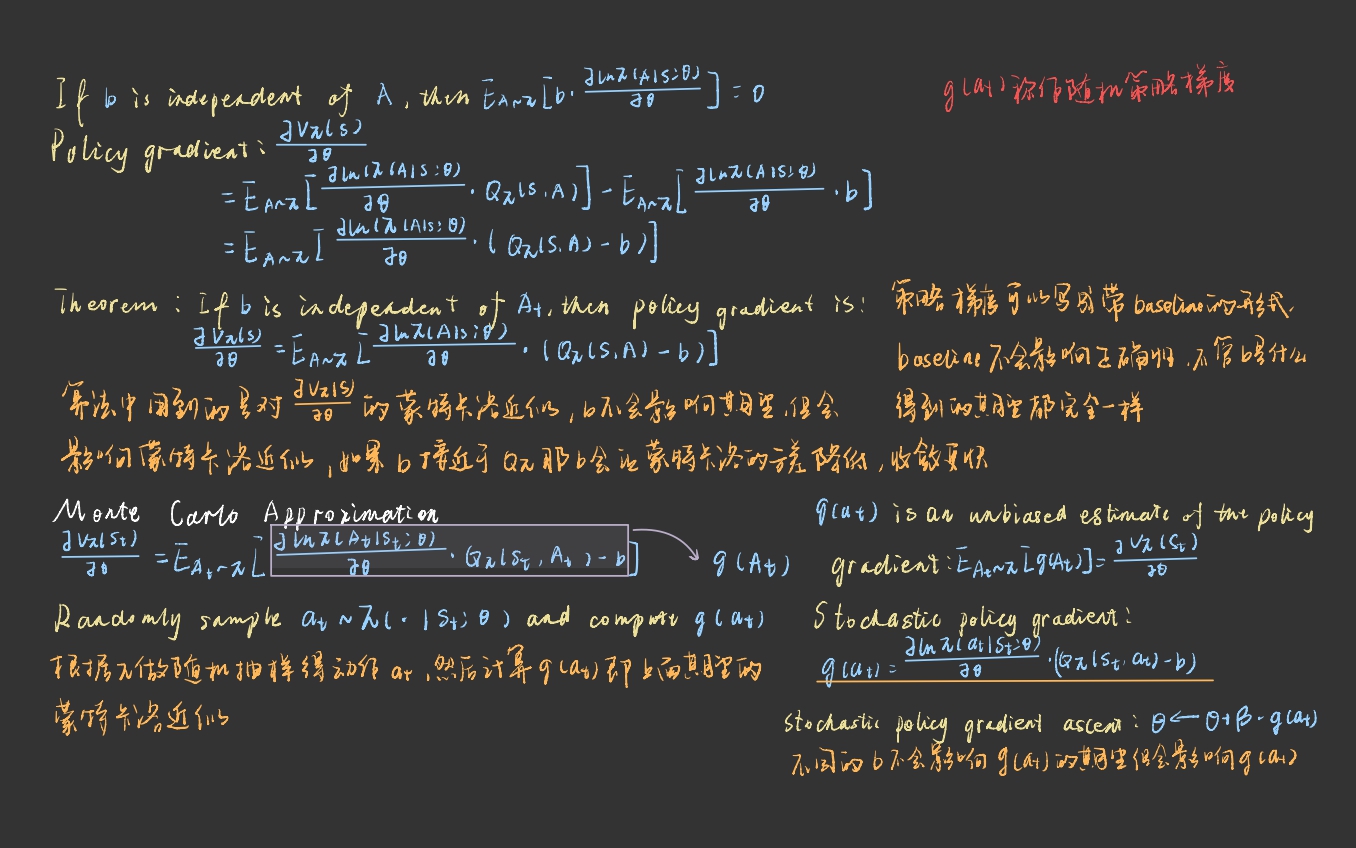 If b is independent of A, then E_{A~π}[b · ∂lnπ(A|S;θ)/∂θ] = 0
g(a_t)称作随机策略梯度
Policy gradient: ∂V_π(s)/∂θ
= E_{A~π}[∂ln(π(A|S;θ)/∂θ · Q_π(S,A)] - E_{A~π}[∂lnπ(A|S;θ)/∂θ · b]
= E_{A~π}[∂ln(π(A|S;θ)/∂θ · (Q_π(S,A) - b)]
Theorem: If b is independent of A_t, then policy gradient is:
∂V_π(s)/∂θ = E_{A~π}[∂lnπ(A|S;θ)/∂θ · (Q_π(S,A) - b)]
策略梯度可以写成带baseline的形式.
baseline不会影响正确性.不管b是什么
得到的期望都完全一样
算法中用到的是对 ∂V_π(s)/∂θ 的蒙特卡洛近似,b不会影响期望,但会
影响蒙特卡洛近似,如果b接近于Q_π那b会让蒙特卡洛的方差降低,收敛更快
Monte Carlo Approximation
∂V_π(S_t)/∂θ = E_{A_t~π}[∂lnπ(A_t|S_t;θ)/∂θ · Q_π(S_t, A_t) - b] g(A_t)
Randomly sample a_t ~ π(·|S_t;θ) and compute g(a_t)
根据π做随机抽样得动作a_t,然后计算g(a_t)即上面期望的
蒙特卡洛近似
g(a_t) is an unbiased estimate of the policy
gradient: E_{A_t~π}[g(A_t)] = ∂V_π(S_t)/∂θ
Stochastic policy gradient:
g(a_t) = ∂lnπ(a_t|S_t;θ)/∂θ · (Q_π(S_t, a_t) - b)
stochastic policy gradient ascent: θ ← θ + β · g(a_t)
不同的b不会影响g(a_t)的期望但会影响g(a_t)